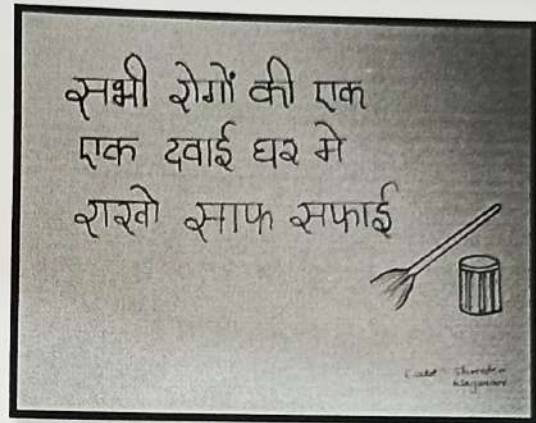 सभी रोगों की एक
एक दवाई घर मे
राखो साफ सफाई